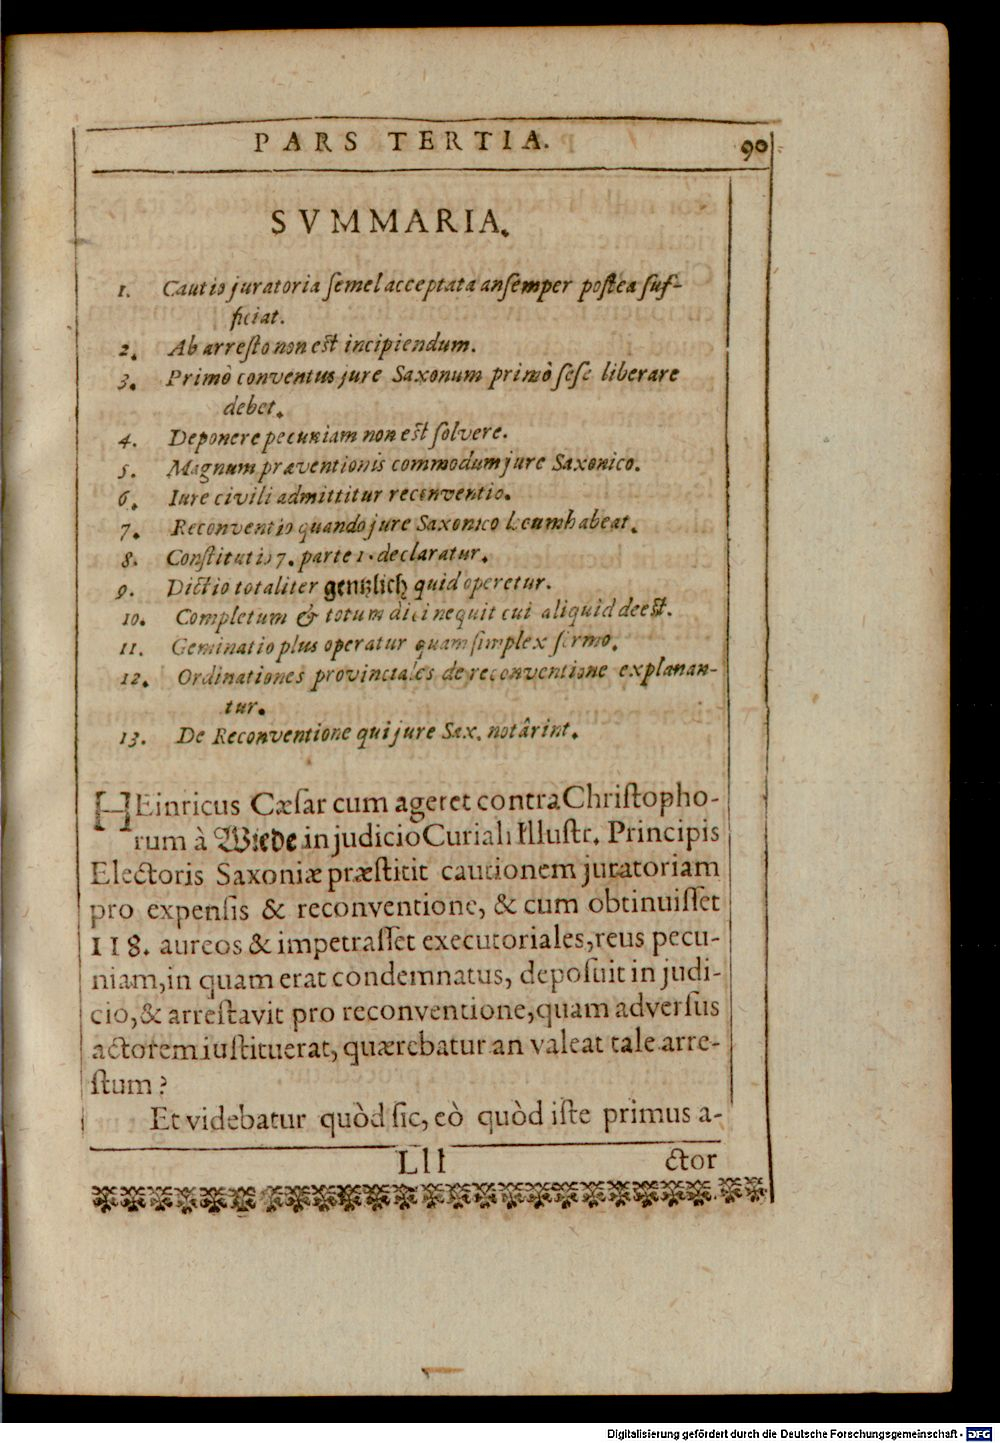 PARS TERTIA. 90
SVMMARIA.
1. Cautio juratoria ſemel acceptata an ſemper poſtea ſuf-
ficiat.
2. Ab arreſto non eſt incipiendum.
3. Primò conventus jure Saxonum primò ſeſe liberare
debet.
4. Deponere pecuniam non eſt ſolvere.
5. Magnum præventionis commodum jure Saxonico.
6. Iure civili admittitur reconventio.
7. Reconventio quando jure Saxonico locum habeat.
8. Conſtitutio 7. parte 1. declaratur.
9. Dictio totaliter gentzlich quid operetur.
10. Completum & totum dici nequit cui aliquid deeſt.
11. Geminatio plus operatur quam ſimplex ſermo.
12. Ordinationes provinciales de reconventione explanan-
tur.
13. De Reconventione qui jure Sax. notârint.
HEinricus Cæſar cum ageret contra Chriſtopho-
rum à Wiede in judicio Curiali Illuſtr. Principis
Electoris Saxoniæ præſtitit cautionem juratoriam
pro expenſis & reconventione, & cum obtinuiſſet
118. aureos & impetraſſet executoriales, reus pecu-
niam, in quam erat condemnatus, depoſuit in judi-
cio, & arreſtavit pro reconventione, quam adverſus
actorem iuſtituerat, quærebatur an valeat tale arre-
ſtum?
Et videbatur quòd ſic, eò quòd iſte primus a-
Lll ctor
Digitalisierung gefördert durch die Deutsche Forschungsgemeinschaft - DFG